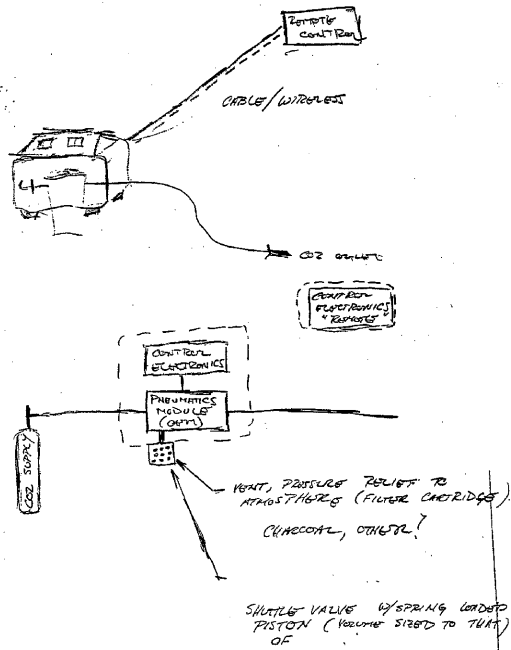 REMOTE
CONTROL
CABLE/WIRELESS
CO2 OUTLET
CONTROL
ELECTRONICS
"REMOTE"
CONTROL
ELECTRONICS
PNEUMATICS
MODULE
(OEM)
CO2 SUPPLY
VENT, PRESSURE RELIEF TO
ATMOSPHERE (FILTER CARTRIDGE).
CHARCOAL, OTHER?
SHUTTLE VALVE W/SPRING LOADED
PISTON (VOLUME SIZED TO THAT)
OF